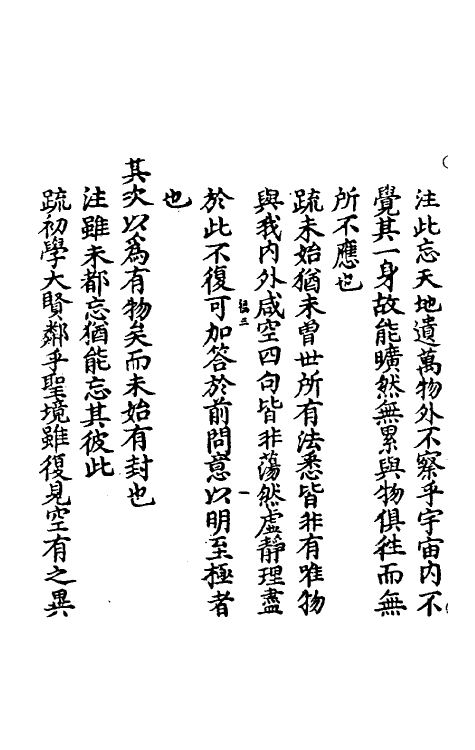 注此忘天地遺萬物外不察乎宇宙内不
覺其一身故能曠然無累與物俱徃而無
所不應也
疏未始猶未曽世所有法悉皆非有唯物
與我内外咸空四句皆非蕩然虛靜理盡
於此不復可加答於前問意以明至極者
也
其次以為有物矣而未始有封也
注雖未都忘猶能忘其彼此
疏初學大賢鄰乎聖境雖復見空有之異